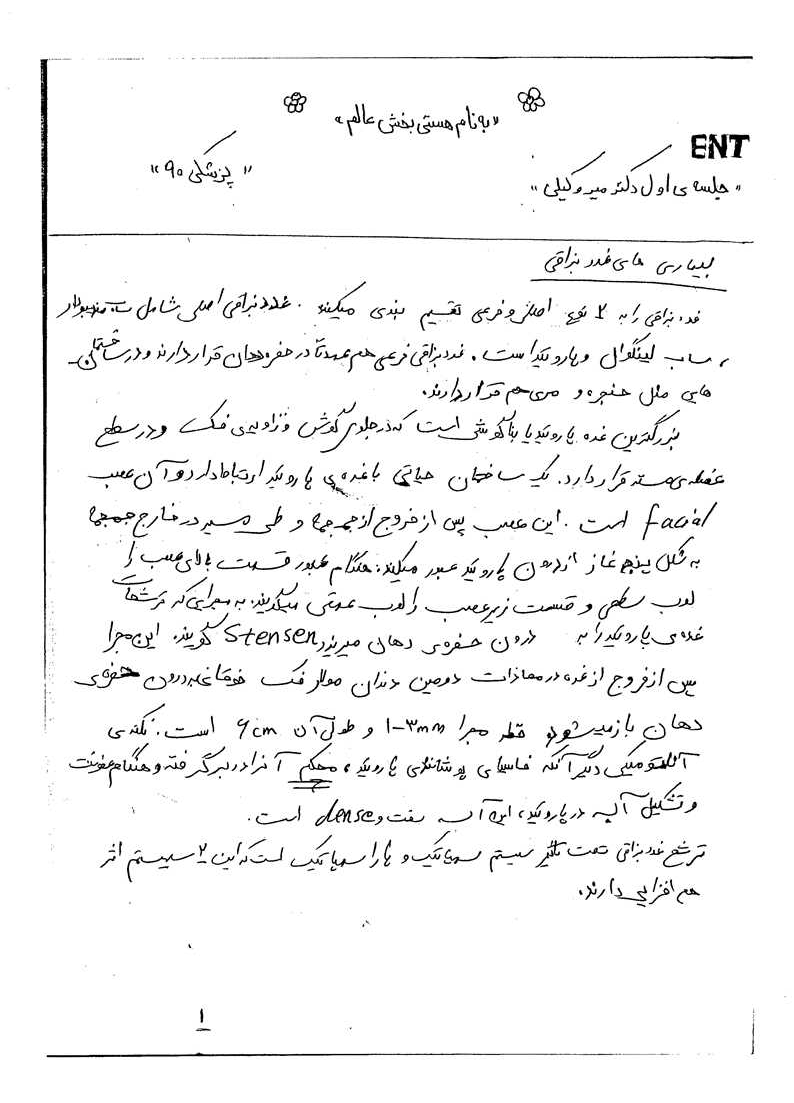 «به نام هستی بخش عالم»
ENT
«جلسه ی اول دکتر میر وکیلی»
"پزشکی ۹۰"
بیماری های غدد بزاقی
غدد بزاقی را به ۲ نوع اصلی و فرعی تقسیم بندی میکنند. غدد بزاقی اصلی شامل ساب مندیبولار
، ساب لینگوال و پاروتید است. غدد بزاقی فرعی هم عمدتاً در حفره دهان قرار دارند و در ساختمان
هایی مثل حنجره و مری هم قرار دارند.
بزرگترین غده پاروتید یا بناگوشی است که در جلوی گوش و زاویه ی فک و در سطح
عضله ی مستر قرار دارد. یک ساختمان حیاتی با غده ی پاروتید ارتباط دارد و آن عصب
facial است. این عصب پس از خروج از جمجمه و طی مسیر در خارج جمجمه
به شکل پنجه غاز از درون پاروتید عبور میکند. هنگام عبور قسمت بالای عصب را
لوب سطحی و قسمت زیر عصب را لوب عمقی میگویند. به مجرایی که ترشحات
غده ی پاروتید را به درون حفره ی دهان میریزد Stensen گویند. این مجرا
پس از خروج از غده در محاذات دومین دندان مولار فک فوقانی به درون حفره ی
دهان باز میشود قطر مجرا ۱-۳mm و طول آن ۶cm است. نکته ی
آناتومیکی دیگر آنکه فاسیای پوشاننده ی پاروتید، محکم آنرا در بر گرفته و هنگام عفونت
و تشکیل آبسه در پاروتید، این آبسه سفت و dense است.
ترشح غدد بزاقی تحت تأثیر سیستم سمپاتیک و پاراسمپاتیک است که این ۲ سیستم اثر
هم افزایی دارند.
۱